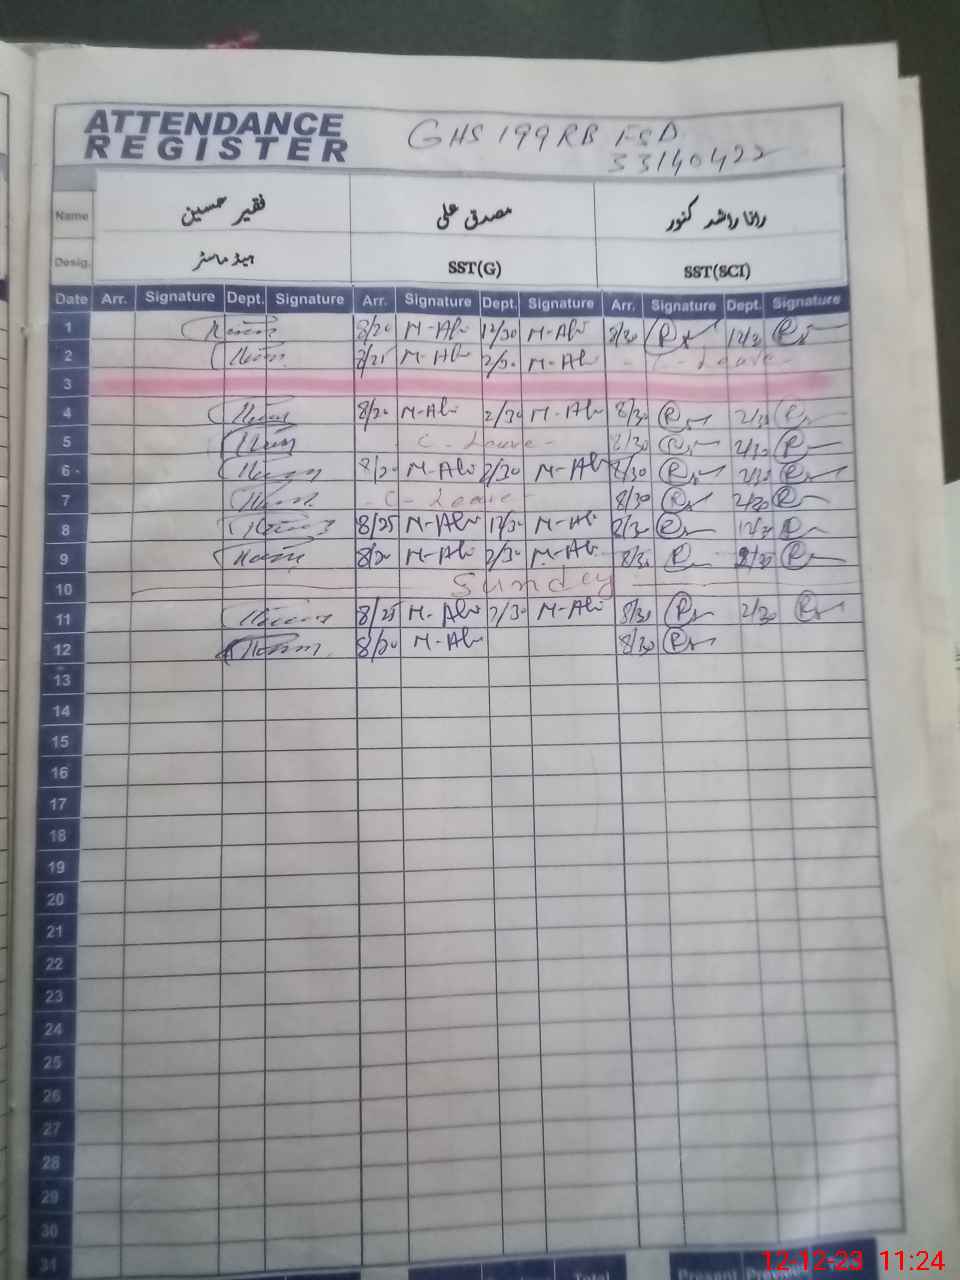 ATTENDANCE
REGISTER
GHS 199RB FSD
33140422
Name فقیر حسین مصدق علی رانا راشد کنور
Desig. ہیڈ ماسٹر SST(G) SST(SCI)
Date Arr. Signature Dept. Signature Arr. Signature Dept. Signature Arr. Signature Dept. Signature
1 8/20 M-Ali 12/30 M-Ali 8/30 12/30
2 8/25 M-Ali 2/30 M-Ali C-Leave-
3
4 8/20 M-Ali 2/30 M-Ali 8/30 2/30
5 C-Leave- 8/30 2/30
6 8/20 M-Ali 2/30 M-Ali 8/30 2/30
7 -C-Leave- 8/30 2/30
8 8/25 M-Ali 12/30 M-Ali 8/30 12/30
9 8/20 M-Ali 2/30 M-Ali 8/30 2/30
10 Sunday
11 8/25 M-Ali 2/30 M-Ali 8/30 2/30
12 8/20 M-Ali 8/30
13
14
15
16
17
18
19
20
21
22
23
24
25
26
27
28
29
30
31
Total Present
12-12-23 11:24